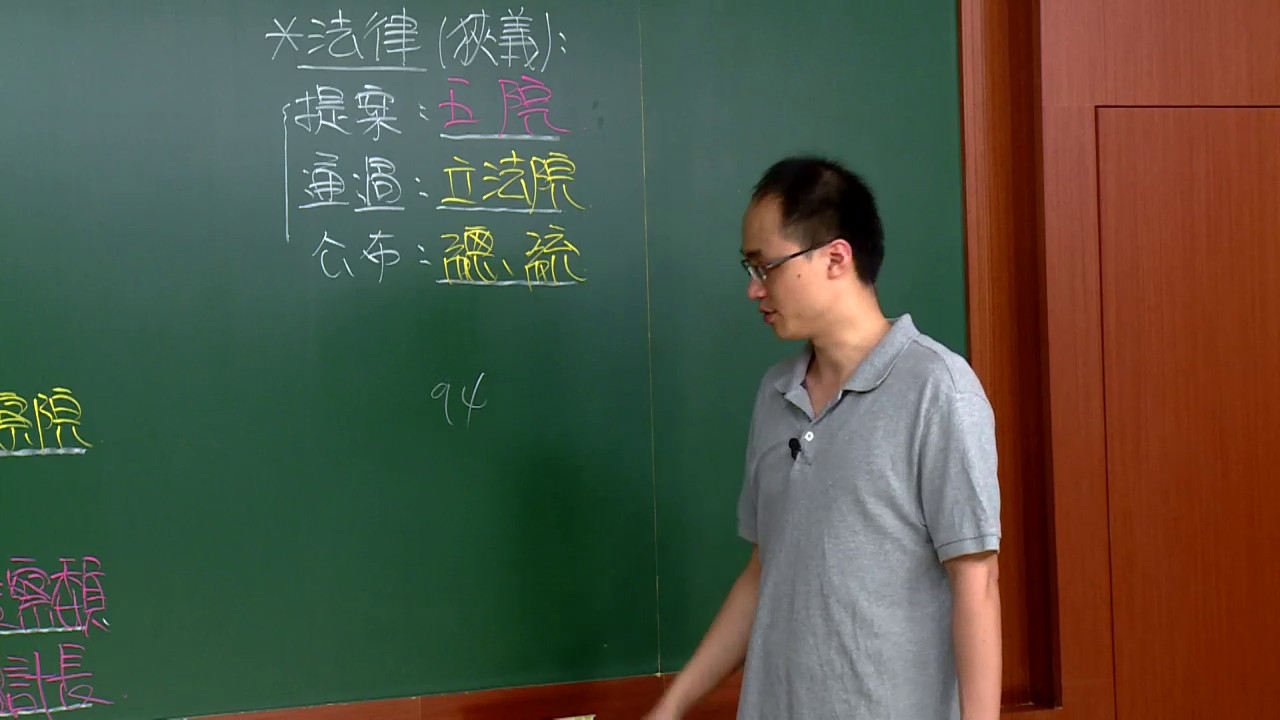 *法律(狹義):
提案:五院
通過:立法院
公布:總統
94
察院
計長